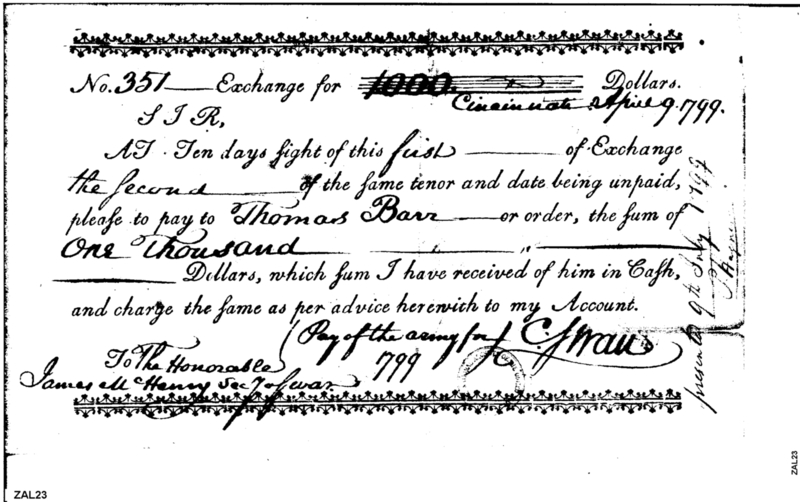 No. 351 Exchange for 1000. Dollars.
Cincinnati April 9. 1799.
S I R,
AT Ten days sight of this first of Exchange
the Second of the same tenor and date being unpaid,
please to pay to Thomas Barr or order, the sum of
One Thousand
Dollars, which sum I have received of him in Cash,
and charge the same as per advice herewith to my Account.
Pay of the army for
1799
C. Swan
To The Honorable
James McHenry Secy of War
presented 9th July 1799
ZAL23
ZAL23